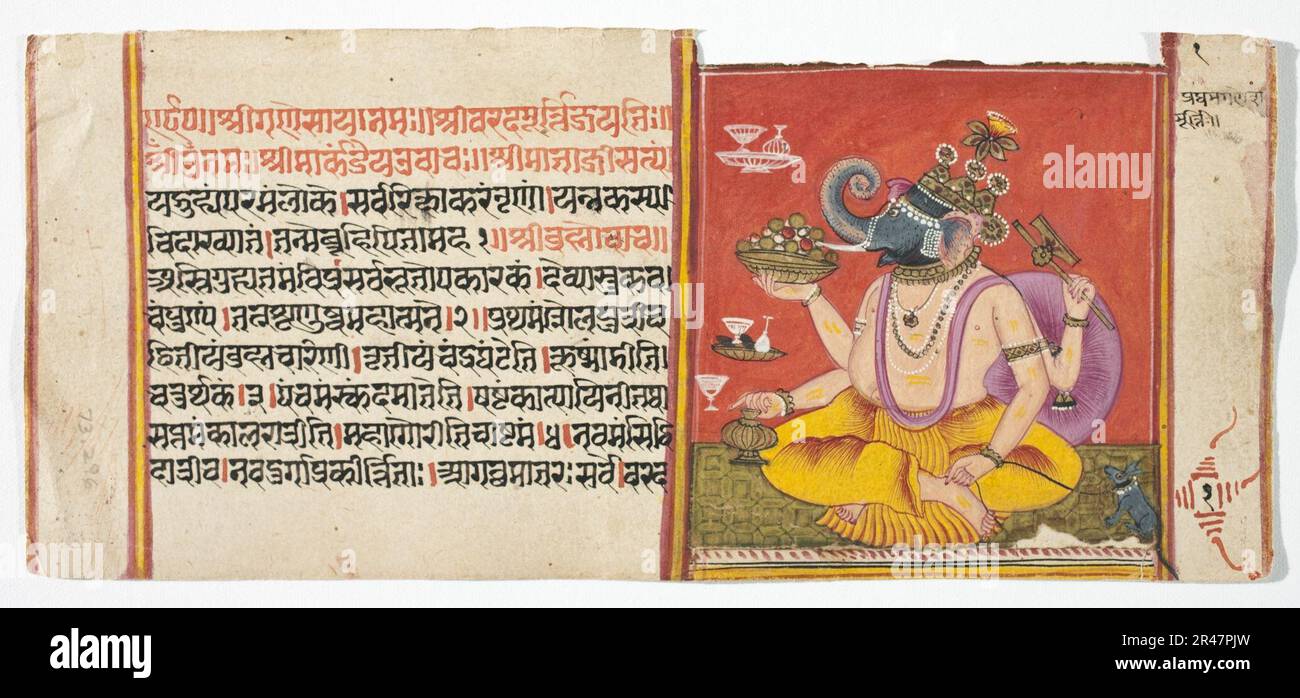 श्रीगणेसायानमः॥श्रीवरदमूर्त्तिर्जयतिः॥
श्रीगुरुनमः॥श्रीमार्कंडेयउवाचः॥श्रीमाताजीसत्यं
यद्गुह्यंपरमंलोके।सर्वरक्षाकरंनृणां।यन्नकस्या
चिदाख्यातं।तन्मेब्रूहिपितामह १॥श्रीब्रह्मोवाच॥
अस्तिगुह्यतमंविप्रसर्वभूतोपकारकं।देव्यास्तुकव
चंपुण्यं।
२॥प्रथमंशैलपुत्रीच
द्वितीयंब्रह्मचारिणी।तृतीयंचंद्रघंटेति।कूष्मांडीति
चतुर्थकं।३।पंचमंस्कंदमातेति।षष्टंकात्यायिनीतथा
सप्तमंकालरात्रीति।महागौरीतिचाष्टमं।४।नवमंसिद्धि
दात्रीच।नवदुर्गाप्रकीर्त्तिताः।आगत्यमातरःसर्वे।वरदा
१
मूर्त्ति॥
१
73.296
alamy
Image ID: 2R47PJW
www.alamy.com